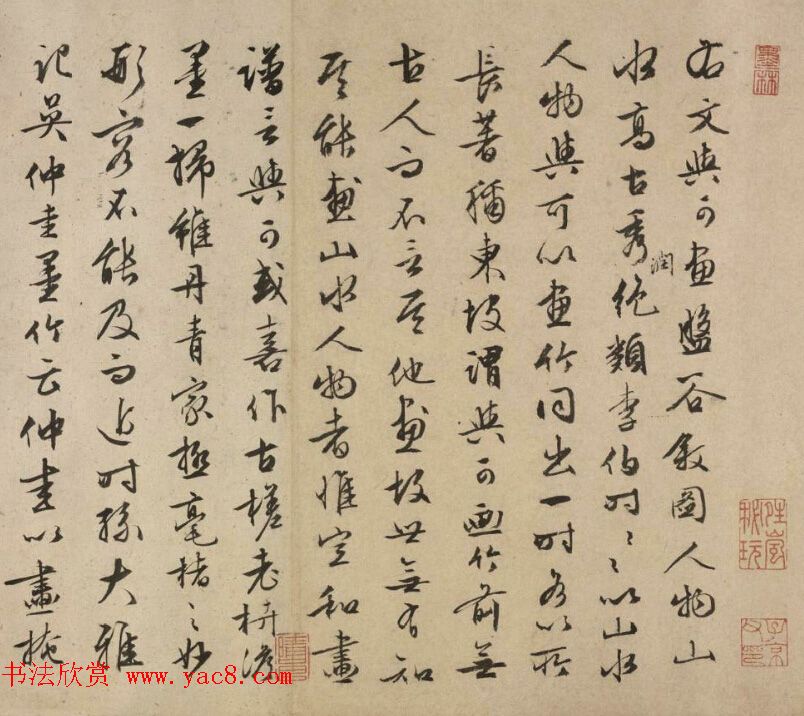 右文與可畫盤谷叙圖人物山
水高古秀潤絕類李伯時〻以山水
人物與可以畫竹同出一時各以所
長著稱東坡謂與可画竹前無
古人而不言其他畫故世無有知
其能畫山水人物者惟宣和畫
譜言與可或喜作古槎老枿淡
墨一掃雖丹青家極毫楮之妙
形容不能及而近時孫大雅
記吳仲圭墨竹云仲圭以畫掩
墨林
子京父印
书法欣赏 www.yac8.com